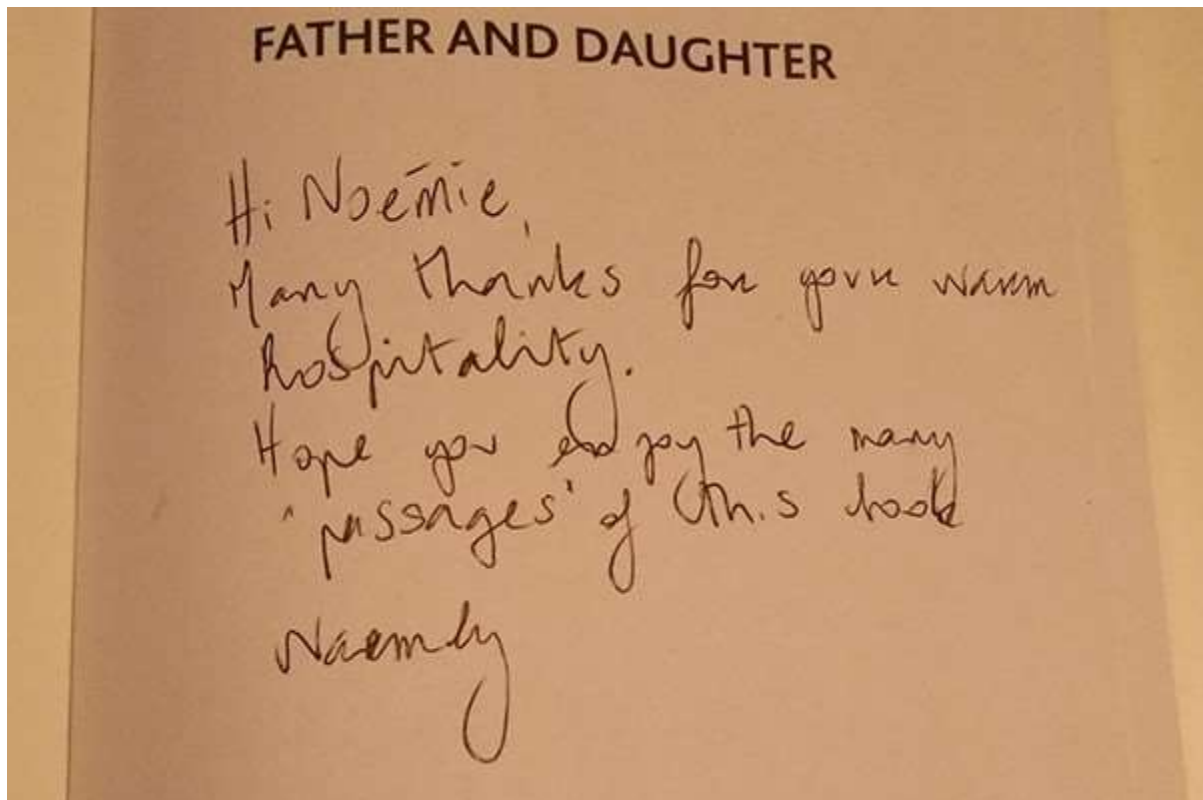 FATHER AND DAUGHTER
Hi Noémie,
Many thanks for your warm
hospitality.
Hope you enjoy the many
'passages' of this book
Warmly